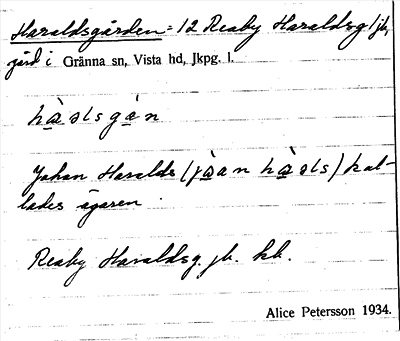 Haraldsgården = 12 Reaby Haraldsg. jb,
gård i Gränna sn, Vista hd, Jkpg. l.
hàlsgán
Johan Haralds (jòan hàls) kal-
lades ägaren.
Reaby Haraldsg. jb. kb.
Alice Petersson 1934.